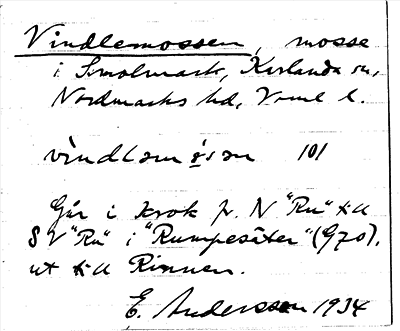 Vindlemossen, mosse
i Smolmark, Karlanda sn,
Nordmarks hd, Vrml l.
vindlam 101
Går i krok fr. N "Ru" till
SV "Ru" i "Rumpesäter" (G70).
ut till Rinnen.
E. Andersson 1934